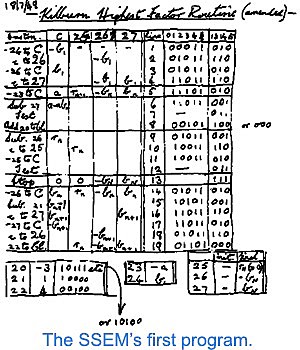 18/7/48 Kilburn Highest Factor Routine (amended)-
C 25 26 27 line 0 1 2 3 4 13 14 15
-24 to C -b₁ 1 00011 010
c to 26 -b₁ 2 01011 110
-26 to C b₁ 3 01011 010
c to 27 -b₁ b₁ 4 11011 110
-23 to C a 5 11101 010
Sub. 27 a-bₙ 6 11011 001
Test 7 — 011
Add 20 to bl. 8 00101 100
or 000
Sub. 26 rₙ 9 01011 001
c to 25 rₙ 10 10011 110
-25 to C 11 10011 010
Test 12 — 011
Stop 0 0 13 111
-26 to C 14 01011 010
Sub. 21 15 10101 001
c to 27 16 11011 110
-27 to C 17 11011 010
c to 26 18 01011 110
22 to bl. 19 01101 000
20 -3 10111 etc
21 1 10000
22 4 00100
23 -a
24 b₁
init. final
25 —
26 — -bₙ
27 —
or 10100
The SSEM's first program.